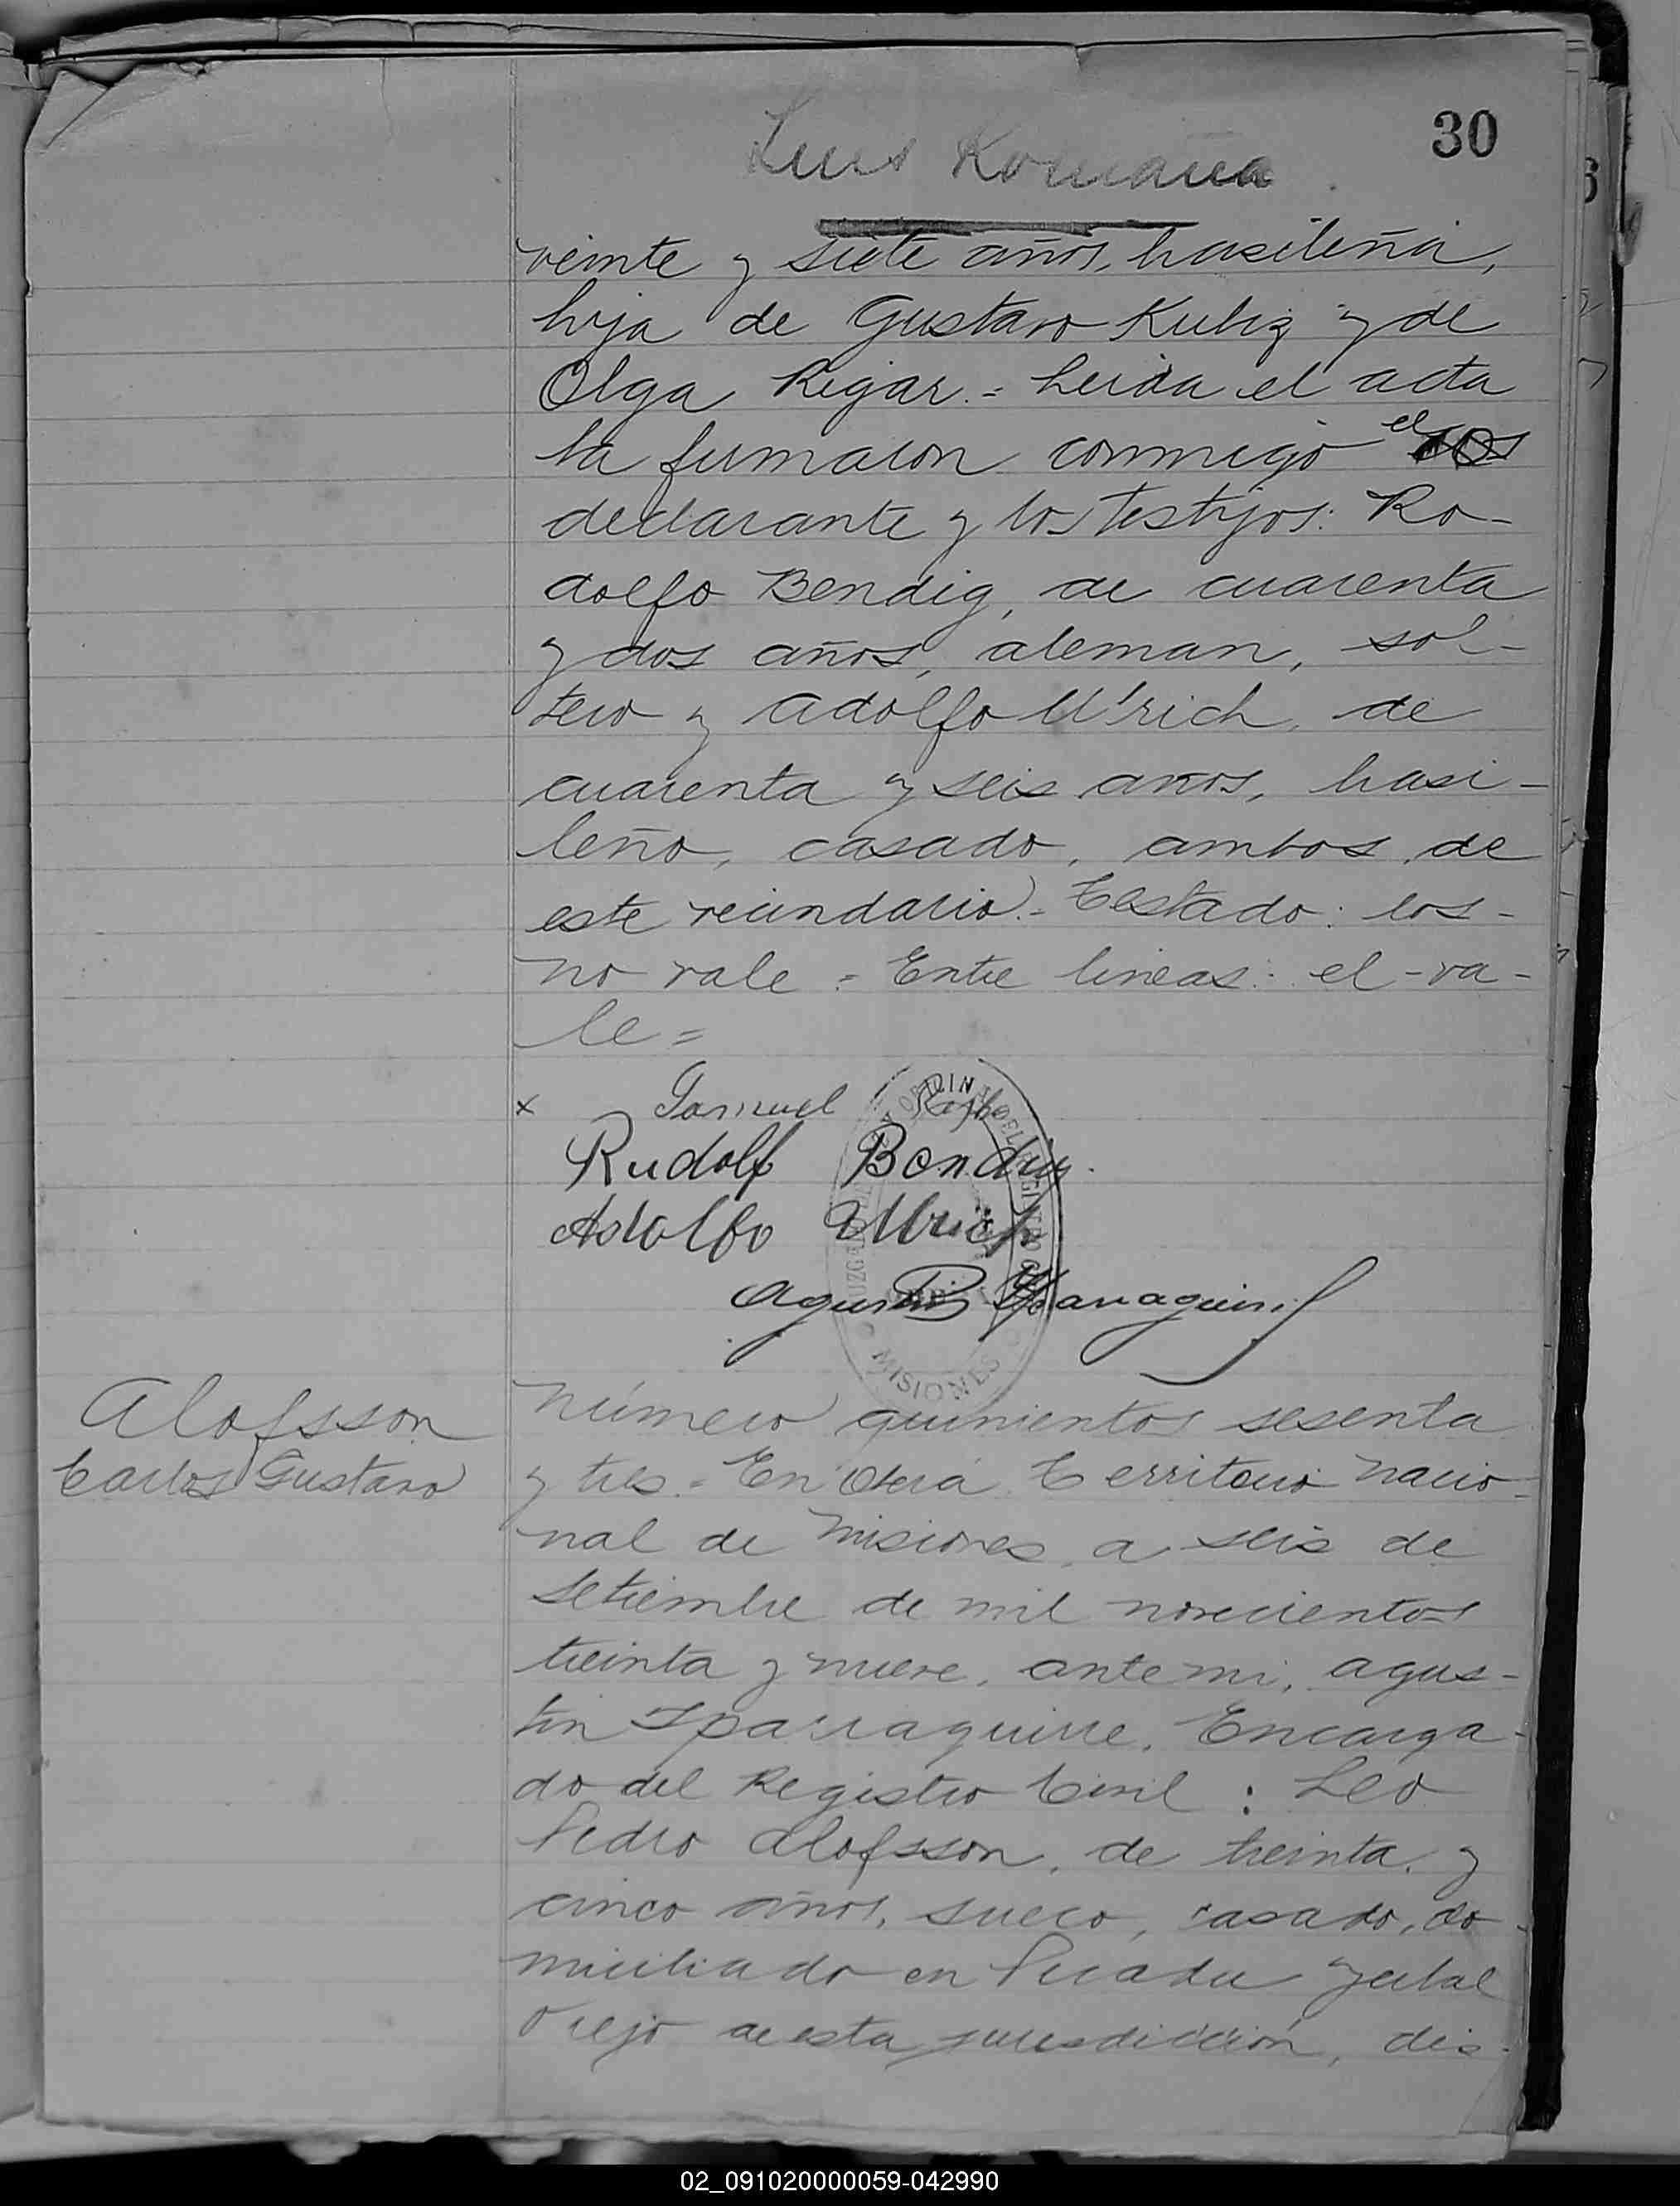 30
Luis Romaña
veinte y siete años, brasileña,
hija de Gustavo Kubiz y de
Olga Regar.= Leida el acta
la firmaron conmigo el los
declarante y los testigos: Ro-
dolfo Bendig, de cuarenta
y dos años, aleman, sol-
tero y Adolfo Ulrich, de
cuarenta y seis años, brasi-
leño, casado, ambos de
este vecindario.= Testado: los-
no vale = Entre lineas: el-va-
le=
x Samuel
Rudolf Bendig.
Adolfo Ullrich
Agustin Yparraguirre
MISIONES
Alofsson
Carlos Gustavo
Número quinientos sesenta
y tres.= En Oberá Territorio Nacio-
nal de Misiones, a seis de
Setiembre de mil novecientos
treinta y nueve, ante mi, Agus-
tin Yparraguirre, Encarga-
do del Registro Civil: Leo
Pedro Alofsson, de treinta y
cinco años, sueco, casado, do-
miciliado en Picada Yerbal
Viejo de esta jurisdicción, dis-
02_091020000059-042990